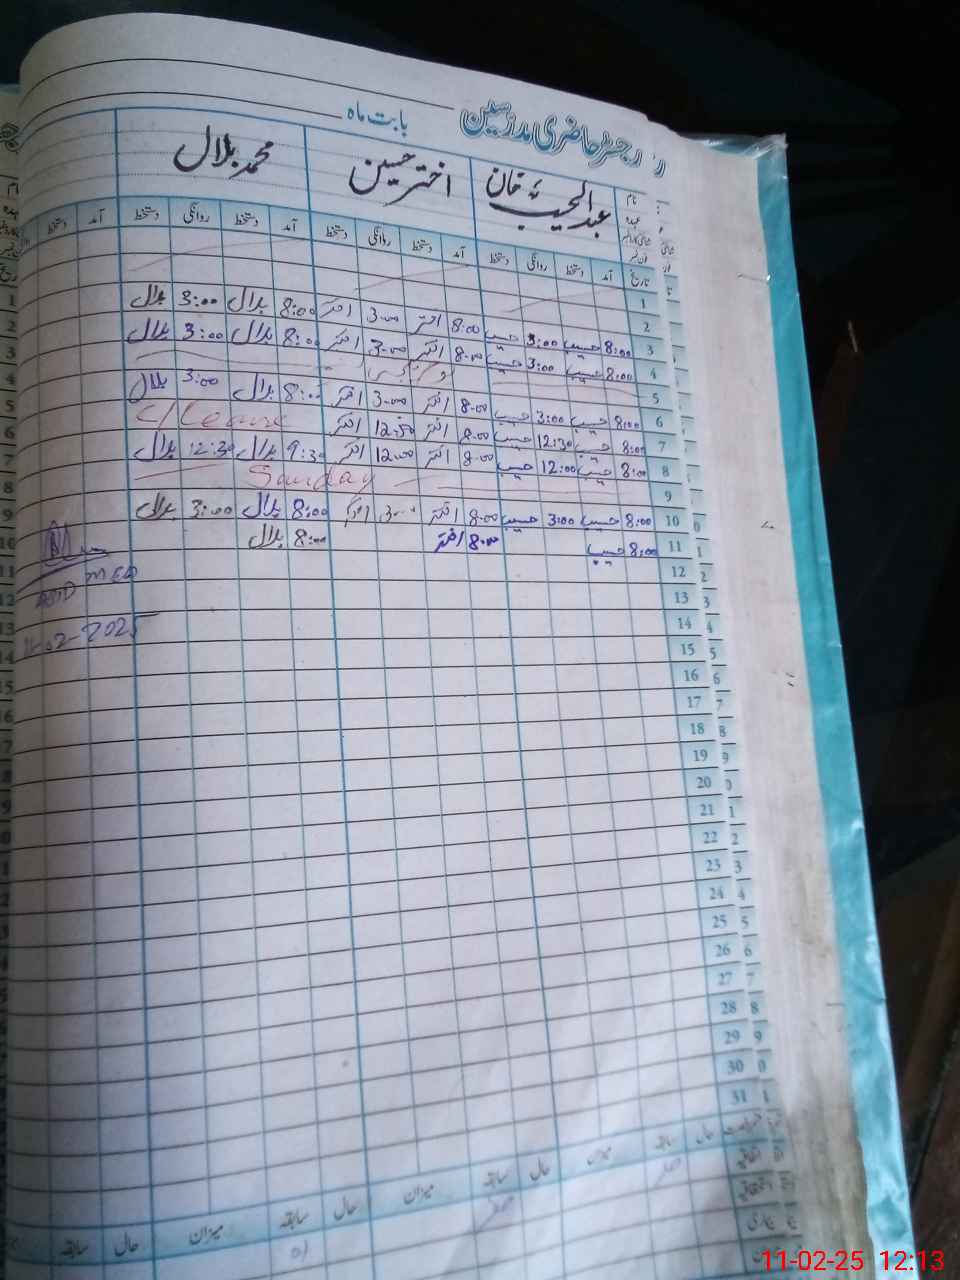 رجسٹر حاضری مدرسین بابت ماہ
نام عبدالحسیب خان اختر حسین محمد بلال
عہدہ
تاریخ آمد دستخط روانگی دستخط آمد دستخط روانگی دستخط آمد دستخط روانگی دستخط آمد دستخط
1
2
3 8:00 حسیب 3:00 حسیب 8:00 اختر 3:00 اختر 8:00 بلال 3:00 بلال
4 8:00 حسیب 3:00 حسیب 8:00 اختر 3:00 اختر 8:00 بلال 3:00 بلال
5
6 8:00 حسیب 3:00 حسیب 8:00 اختر 3:00 اختر 8:00 بلال 3:00 بلال
7 8:00 حسیب 12:30 حسیب 8:00 اختر 12:30 اختر C/Leave
8 8:00 حسیب 12:00 حسیب 8:00 اختر 12:00 اختر 9:30 بلال 12:30 بلال
9 Sunday
10 8:00 حسیب 3:00 حسیب 8:00 اختر 3:00 اختر 8:00 بلال 3:00 بلال
11 8:00 حسیب 8:00 اختر 8:00 بلال
12
13
14
15
16
17
18
19
20
21
22
23
24
25
26
27
28
29
30
31
MEA
11-02-2025
حال سابقہ میزان حال سابقہ میزان حال سابقہ میزان حال سابقہ
11-02-25 12:13